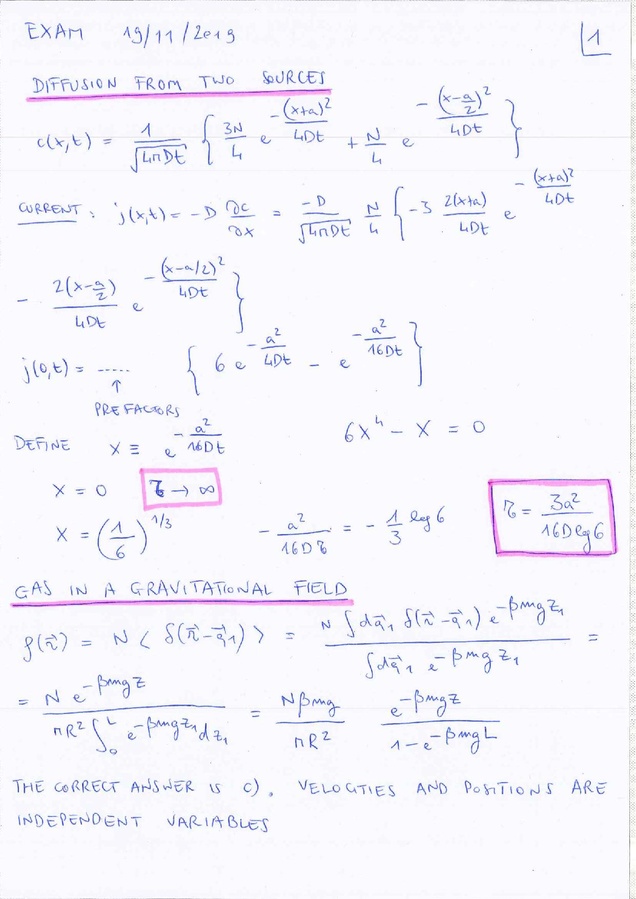 EXAM 19/11/2019
1
DIFFUSION FROM TWO SOURCES
c(x,t) = 1/√(4πDt) { 3N/4 e^(-(x+a)²/4Dt) + N/4 e^(-(x-a/2)²/4Dt) }
CURRENT: j(x,t) = -D ∂c/∂x = -D/√(4πDt) N/4 { -3 2(x+a)/4Dt e^(-(x+a)²/4Dt)
- 2(x-a/2)/4Dt e^(-(x-a/2)²/4Dt) }
j(0,t) = ..... { 6 e^(-a²/4Dt) - e^(-a²/16Dt) }
↑
PREFACTORS
DEFINE X ≡ e^(-a²/16Dt) 6X⁴ - X = 0
X = 0 τ → ∞
X = (1/6)^(1/3) -a²/16Dτ = -1/3 log 6 τ = 3a²/16D log 6
GAS IN A GRAVITATIONAL FIELD
ρ(r⃗) = N < δ(r⃗-q⃗₁) > = N ∫dq⃗₁ δ(r⃗-q⃗₁) e^(-βmgz₁) / ∫dq⃗₁ e^(-βmgz₁) =
= N e^(-βmgz) / πR² ∫₀^L e^(-βmgz₁) dz₁ = Nβmg/πR² e^(-βmgz)/(1-e^(-βmgL))
THE CORRECT ANSWER IS c). VELOCTIES AND POSITIONS ARE
INDEPENDENT VARIABLES